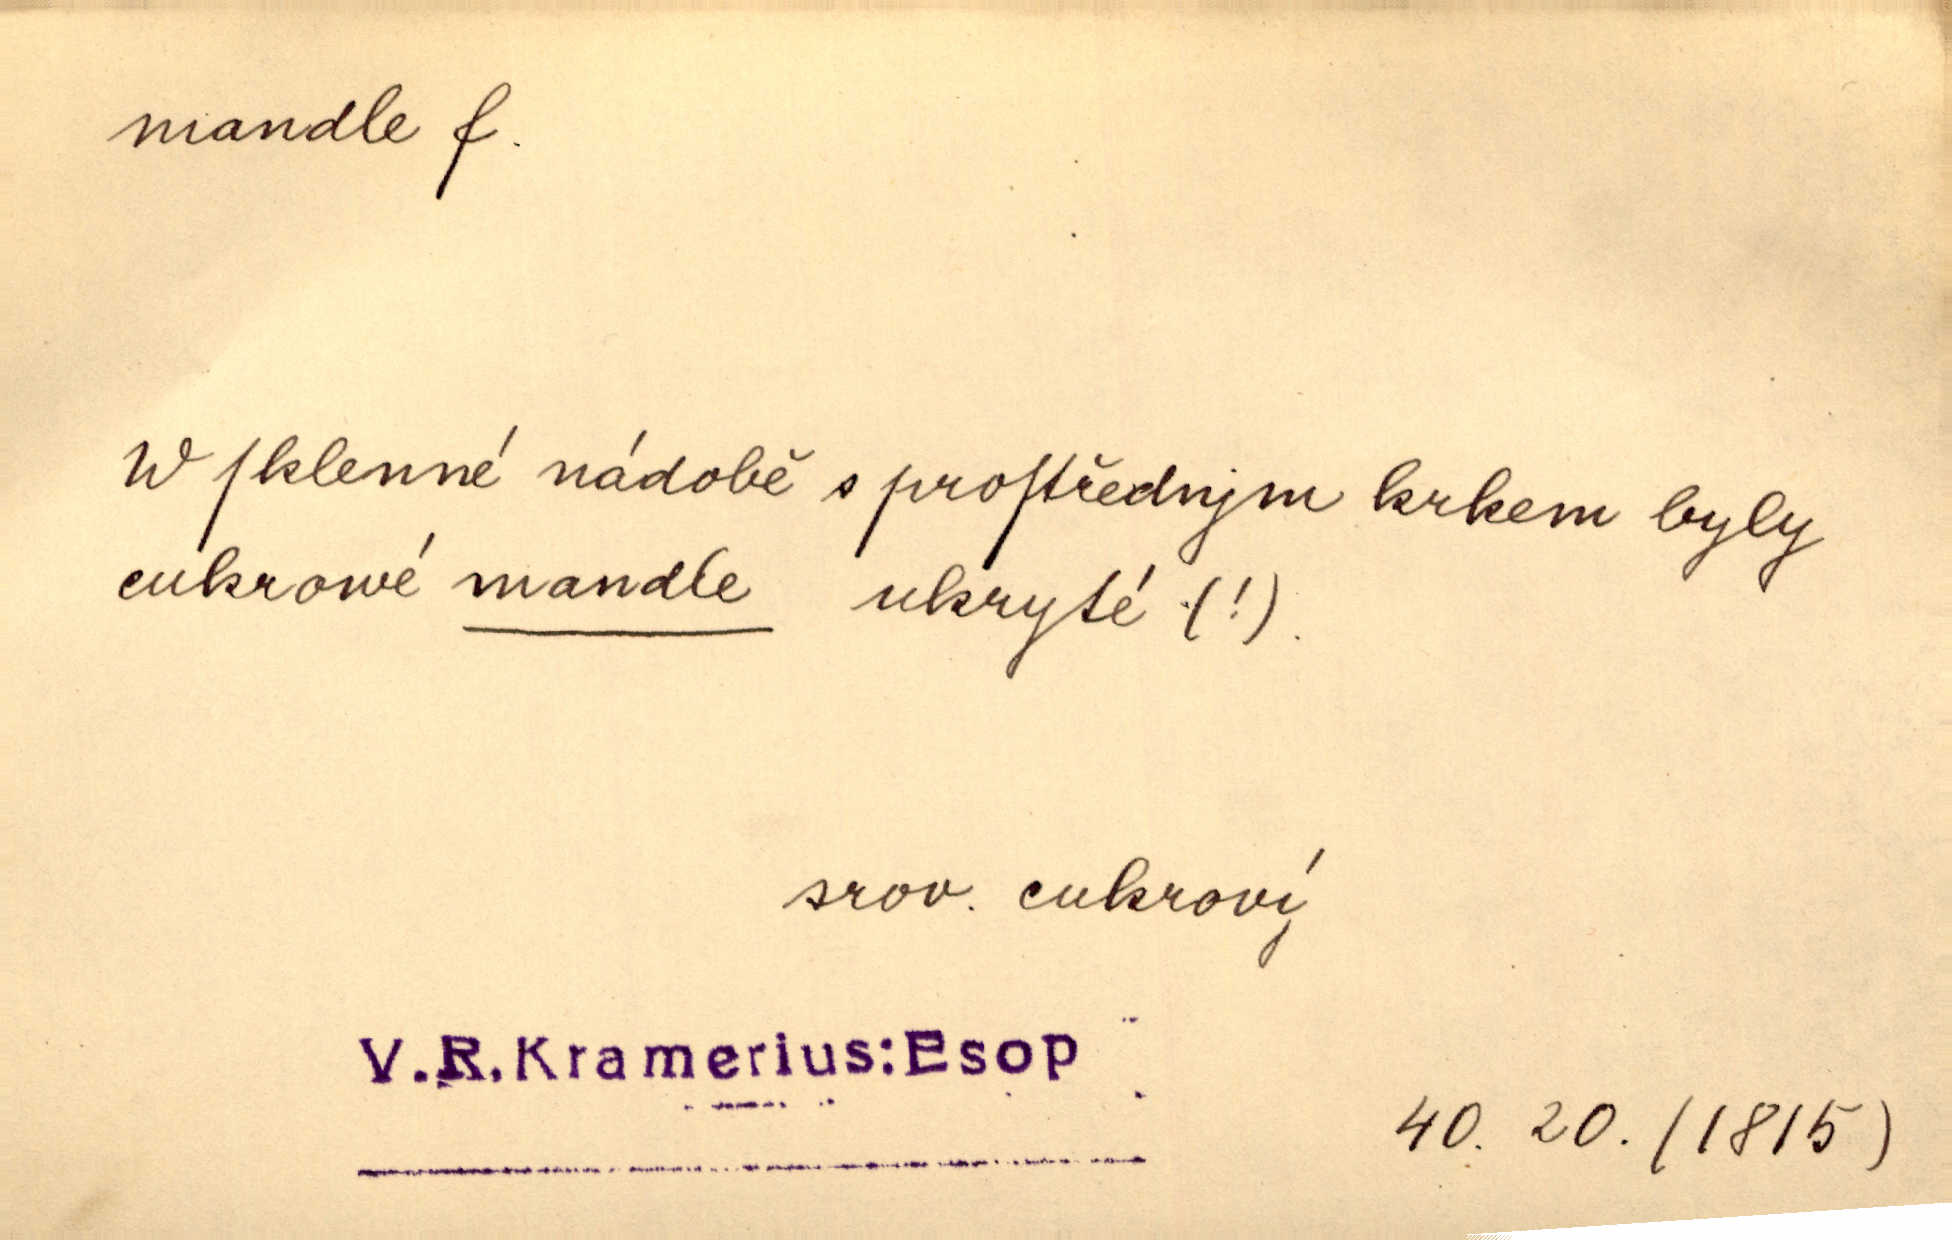 mandle f.
W ſklenné nádobě s proſtřednjm krkem byly
cukrowé mandle ukryté (!).
srov. cukroví
V.R.Kramerius:Esop
40. 20. (1815)